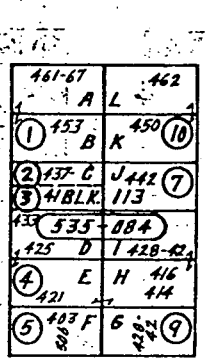 461-67 462
A L
1 453 B K 450 10
2 437- C J 442 7
3 41 BLK. 113
433
535-084
425 D I 428-42
4 E H 416
421 414
5 403 F G 428-42 9